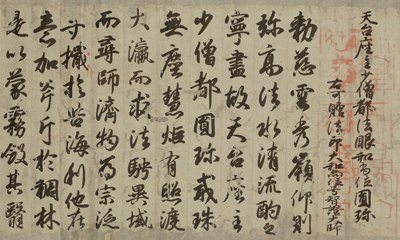 天台座主少僧都法眼和尚位圓珍
右可贈法印大和尚位号智證大師
勅慈雲秀嶺仰則
弥高法水清流酌之
寧盡故天台座主
少僧都圓珍戒珠
無塵慧炬有照渡
大瀛而求法騁異域
而尋師濟物為宗泛
寸檝於苦海利他在
意加斧斤於稠林
是以蒙霧斂其翳